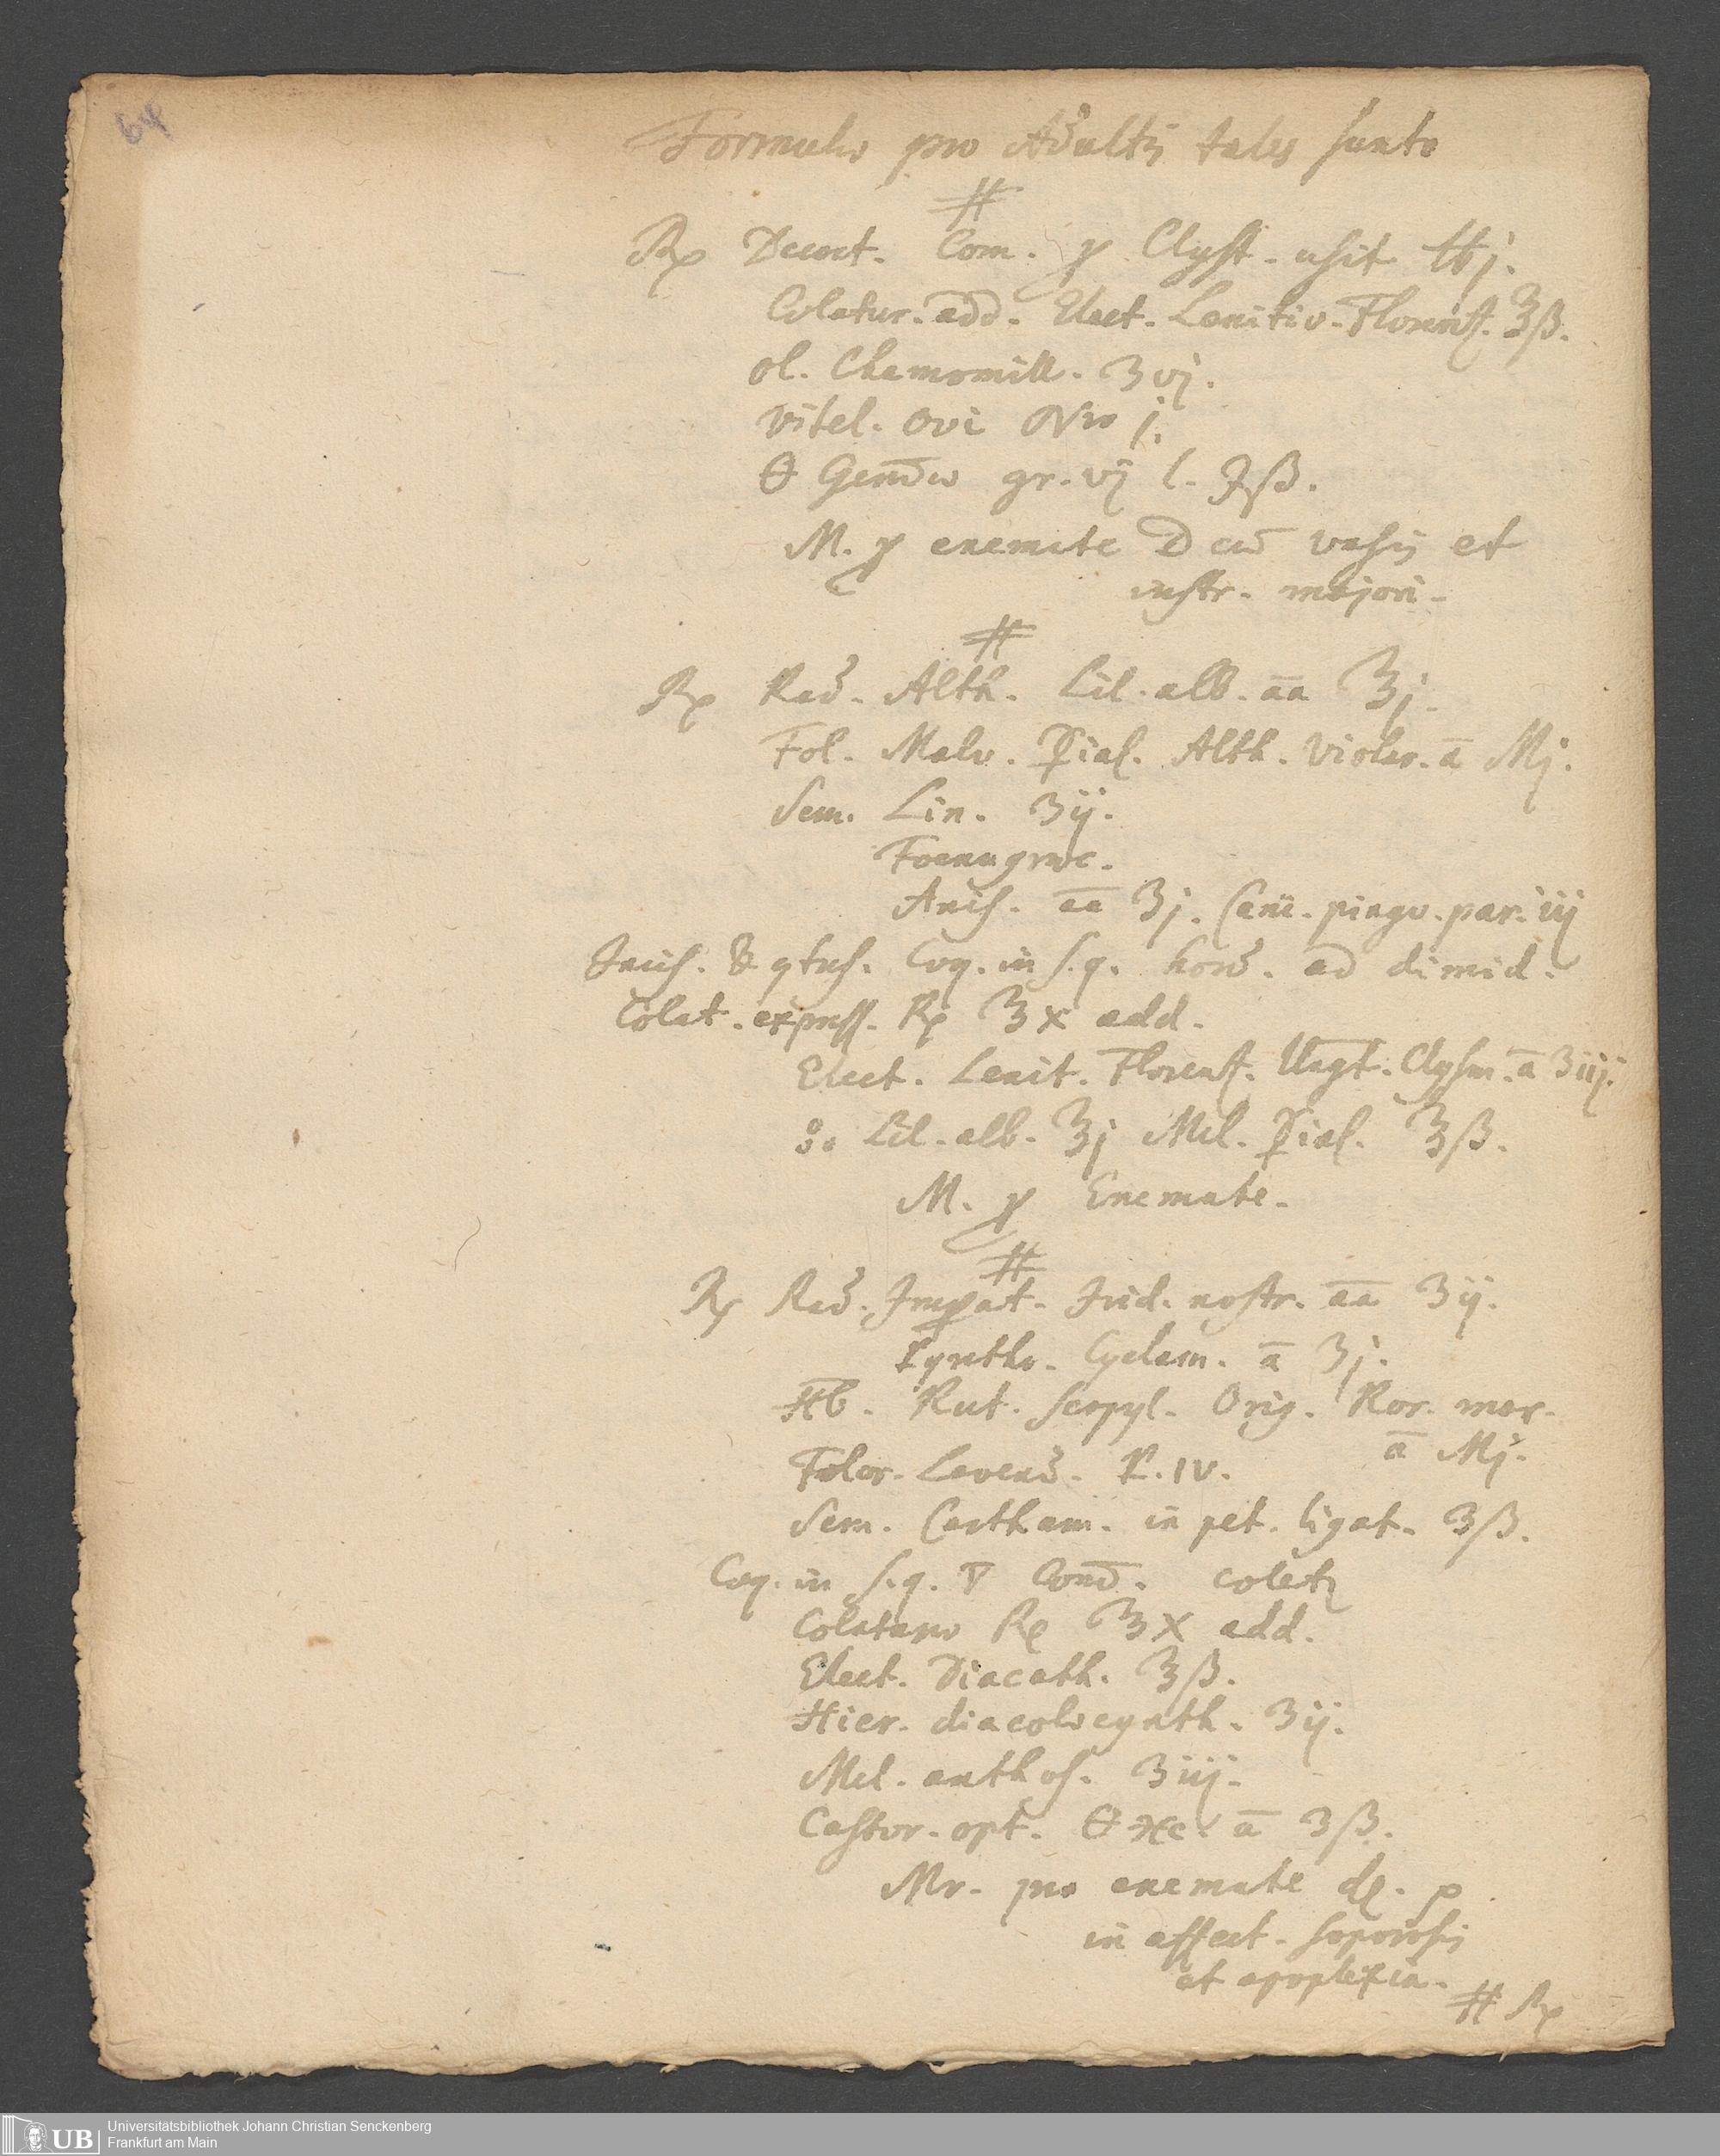 64
Formulae pro Adultis tales sunto
#
℞ Decoct. Com. p Clyst. usit ℔j.
Colatur. add. Elect. Lenitiv. Florent. ℥ß.
ol. Chamomill. ʒvj.
Vitel. Ovi Nro j.
🜔 Gem̄ae gr. vj l. ℈ß.
M. p enemate D cū vasis et
instr. majori.
#
℞ Rad. Alth. Lil. alb. aa ℥j.
Fol. Malv. Alth. Violar. a Mj.
Sem. Lin. ʒij.
Foenugraec.
Anis. aa ʒj. Caric. pingv. par. iij
Incis. & Coq. in s. q. hord. ad dimid.
Colat. express. ℞ ℥x add.
Elect. Lenit. Florent. Ungt. Clysm. a ʒiij.
Lil. alb. ℥j Mel. ℥ß.
M. p Enemate.
#
℞ Rad. Imperat. Irid. nostr. aa ʒij.
Pyrethr. Cyclam. a ʒj.
Hb. Rut. Serpyl. Orig. Ror. mar.
a Mj.
Flor. Lavend. P. IV.
Sem. Cartham. in pet. ligat. ʒß.
Coq. in s. q. 🜄 Com̄. coletr
Colaturae ℞ ℥X add.
Elect. Diacath. ℥ß.
Hier. diacolocynth. ʒij.
Mel. anthos. ʒiij.
Castor. opt. a ʒß.
Mr. pro enemate
in affect. soporosis
et apoplexia.
# ℞
UB
Universitätsbibliothek Johann Christian Senckenberg
Frankfurt am Main